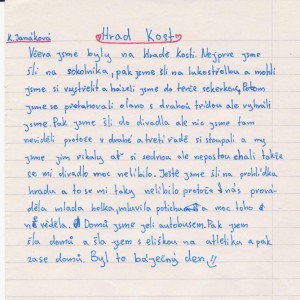 K. Janáková
Hrad Kost
Včera jsme byly na Hradě Kosti. Nejprve jsme
šli na sokolníka, pak jsme šli na lukostřelbu a mohli
jsme si vystřelit a házeli jsme do terče sekerkou. Potom
jsme se přetahovali o lano s druhou třídou ale vyhráli
jsme. Pak jsme šli do divadla ale nic jsme tam
neviděli protože v druhé a třetí řadě si stoupali a my
jsme jim říkaly ať si sednou ale neposlouchali takže
se mi divadlo moc nelíbilo. Ještě jsme šli na prohlídku
hradu a to se mi taky nelíbilo protože nás prová-
děla mladá holka, mluvila potichu a moc toho
nevěděla. Domů jsme jeli autobusem. Pak jsem
šla domů a šla jsem s eliškou na atletiku a pak
zase domů. Byl to báječný den!!